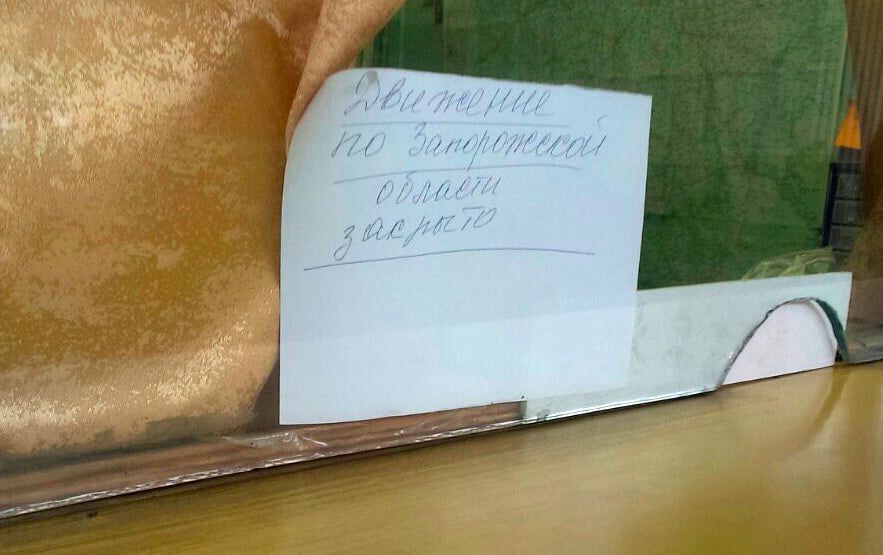 Движение
по Запорожской
области
закрыто